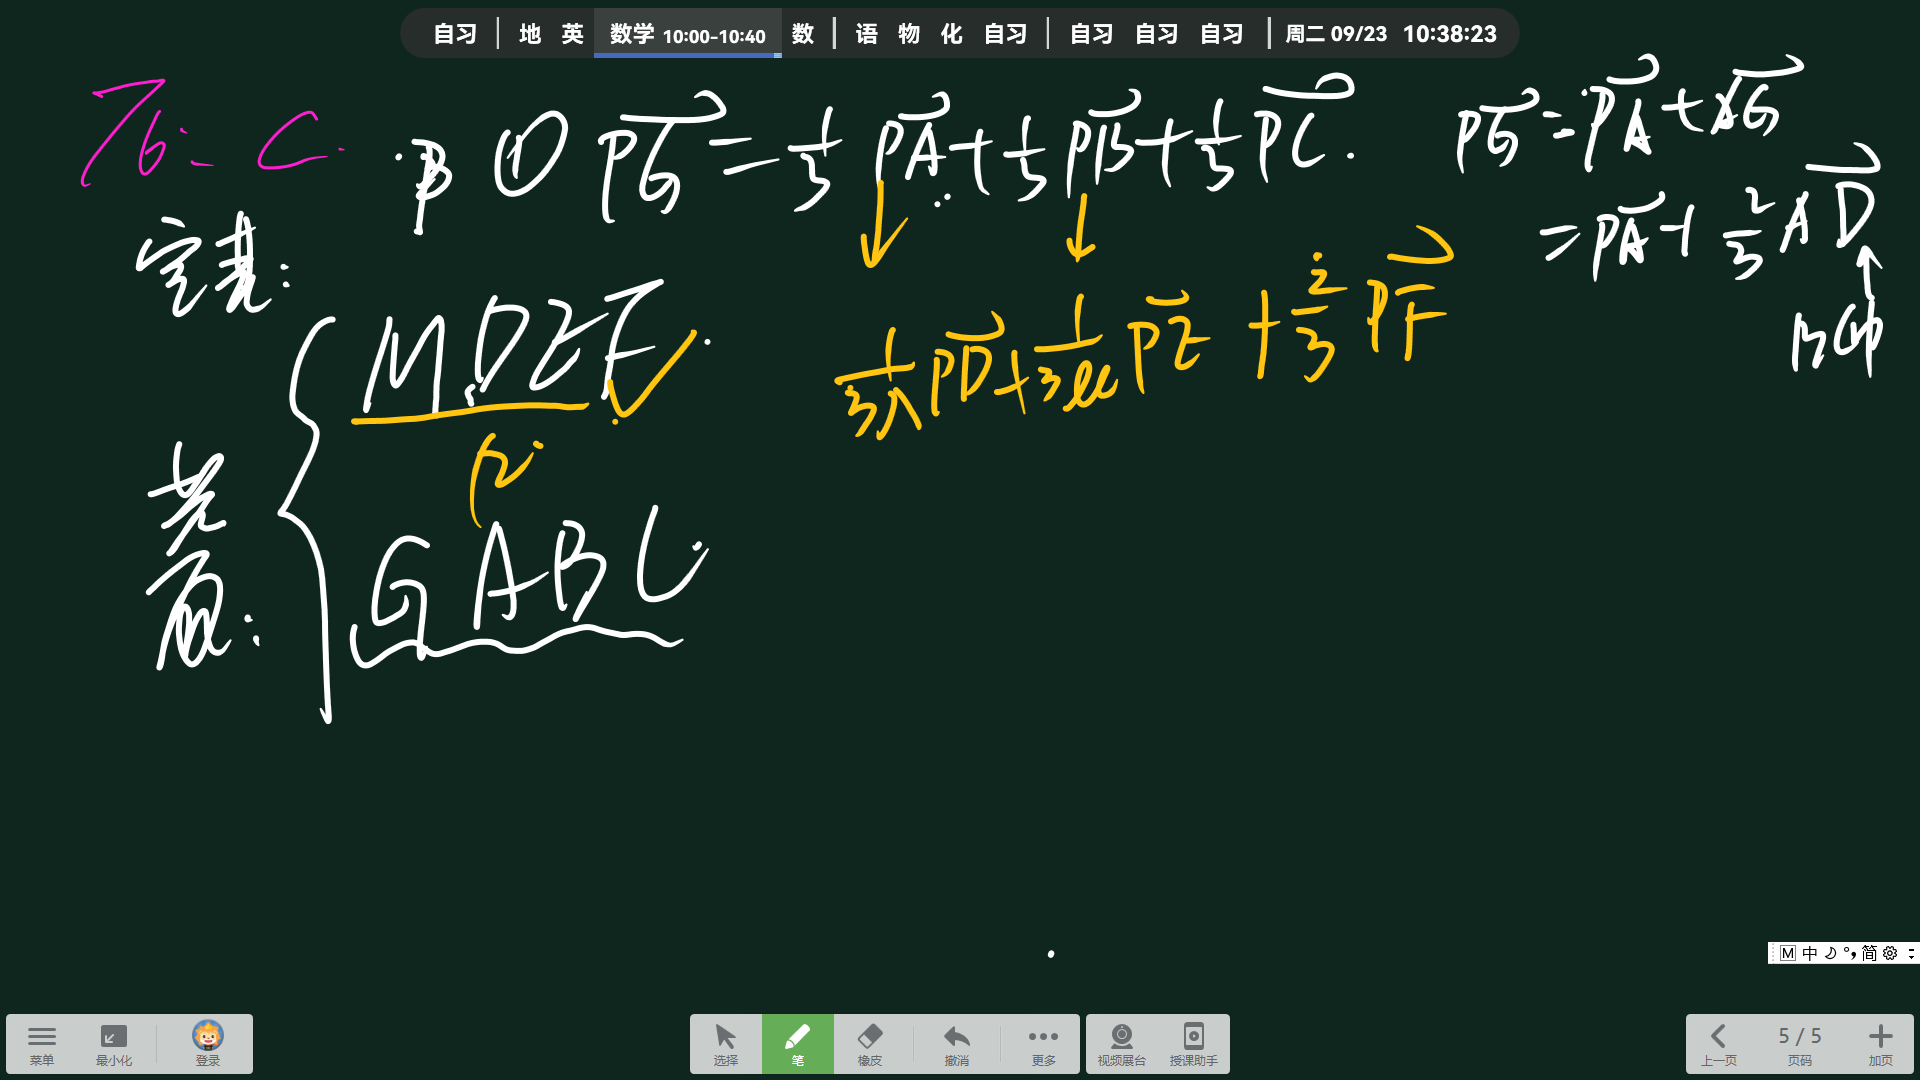 自习 | 地 英 数学 10:00-10:40 数 | 语 物 化 自习 | 自习 自习 自习 | 周二 09/23 10:38:23
76: C.
P ① PG = 1/3 PA + 1/3 PB + 1/3 PC.
PG = PA + AG
= PA + 2/3 AD
定基:
M.DEF.
1/3λ PD + 1/3μ PE + 2/3 PF
GABC
M 中 简
菜单 最小化 登录 选择 笔 橡皮 撤消 更多 视频展台 授课助手 上一页 5 / 5 页码 加页